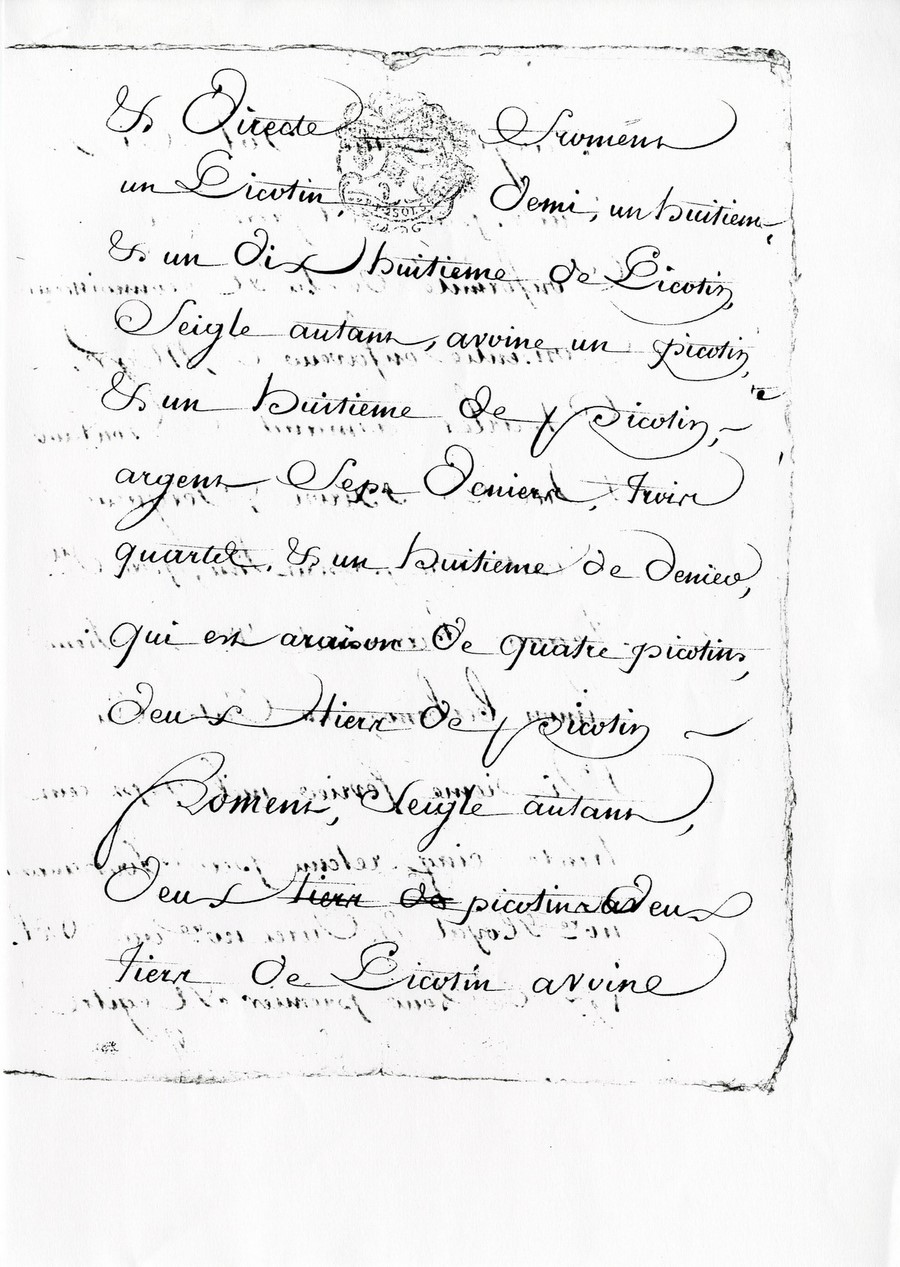 & Directe fromens
un Picotin, demi, un huitiem-
& un dix huitieme de Picotin,
Seigle autant, avoine un picotin,
& un huitieme de picotin,
argent Sept Deniers, trois
quartz, & un huitieme de denier,
qui est araison de quatre picotins,
deux tiers de picotin
fromens, Seigle autant,
deux tiers de picotins deux
tiers de Picotin avoine